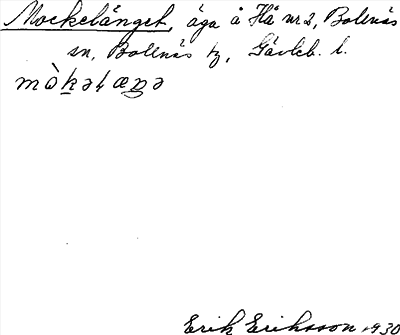 Mockelänget, äga å Hå nr 2, Bolnäs
sn, Bollnäs tg, Gävleb. l.
Erik Eriksson 1930